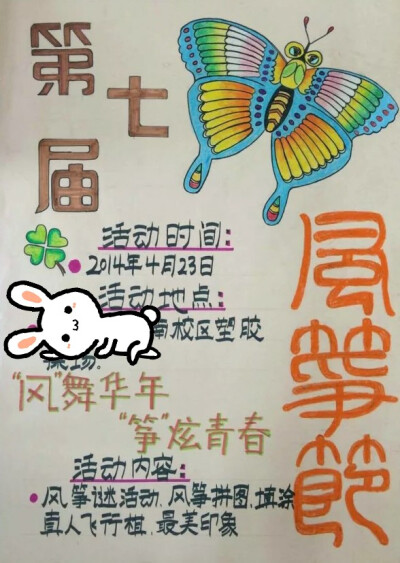 第七届
风筝節
活动时间：
2014年4月23日
活动地点：
南校区塑胶
操场。
“风”舞华年
“筝”炫青春
活动内容：
风筝谜活动、风筝拼图、填涂、
真人飞行棋、最美印象